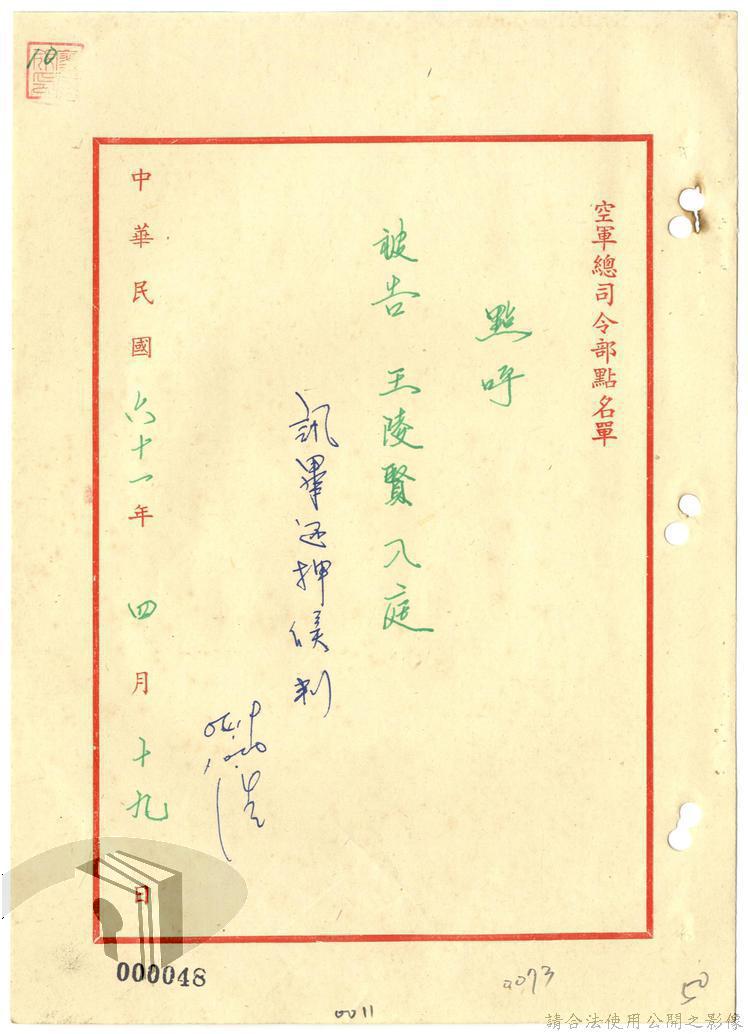 空軍總司令部點名單
點呼
被告 王陵賢 入庭
訊畢還押候判
中華民國六十一年四月十九日
10
000048
0011
0073
50
請合法使用公開之影像